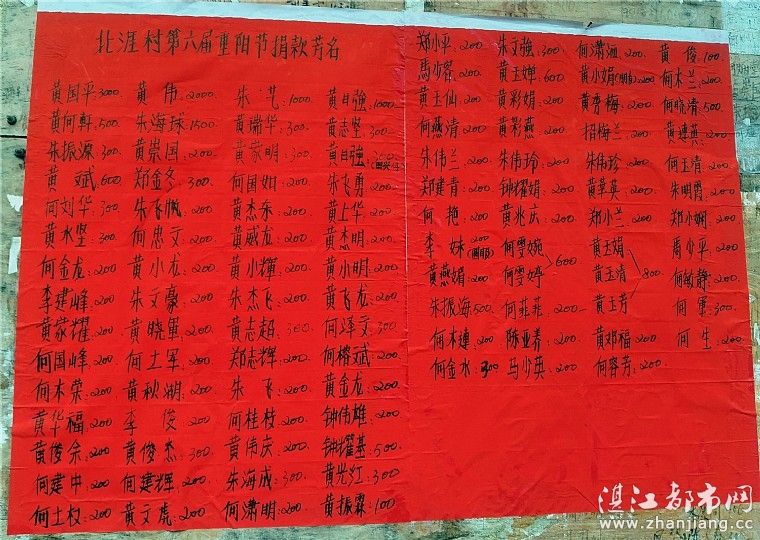 北涯村第六届重阳节捐款芳名
黄国平:3000 黄伟:2000 朱艺:1000 黄日強:1000
黄何軒:500 朱海球:1500 黄瑞华:300 黄志坚:300
朱振源:300 黄崇国:200 黄家明:300 黄日強:
黄斌:600 郑金冬:300 何国如:200 朱飞勇:200
何刘华:300 朱飞帆:200 黄杰东:200 黄上华:200
黄水坚:300 何忠文:200 黄威龙:200 黄杰明:200
何金龙:200 黄小龙:200 黄小輝:200 黄小明:200
李建峰:200 朱文豪:200 朱杰飞:200 黄飞龙:200
黄家耀:200 黄晓軍:200 黄志超:300 何泽文:300
何国峰:200 何土军:200 郑志輝:200 何榕斌:200
何木荣:200 黄秋湖:200 朱飞:200 黄金龙:200
黄华福:200 李俊:200 何桂枝:200 钟伟雄:200
黄俊余:200 黄俊杰:300 黄伟庆:200 钟耀基:500
何建中:200 何建輝:200 朱海成:300 黄光江:300
何土权:200 黄文虎:200 何潇明:200 黄振霖:100
郑小平:200 朱文強:300 何潇洒:200 黄俊:100
馬少容:200 黄玉婵:600 黄小娟 200 何木兰:200
黄玉仙:200 黄彩娟:200 黄秀梅:200 何晓清:500
何燕清:200 黄彩燕:200 招梅兰:200 黄連英:100
朱伟兰:200 朱伟玲:200 朱伟珍:200 何玉清:200
郑建青:200 钟耀娟:200 黄華英:200 朱明霞:200
何艳:200 黄兆庆:200 郑小兰:200 郑小娴:200
李妹 200 何雯婉 600 黄玉娟 馬少平:200
黄燕娟:200 何雯婷 黄玉清 800 何敏静:200
朱振海:500 何菲菲:200 黄玉芳 何軍:300
何木連:200 陈亚养:200 黄邓福:200 何生:200
何金水:300 马少英:200 何容芳:200
湛江都市网
www.zhanjiang.cc